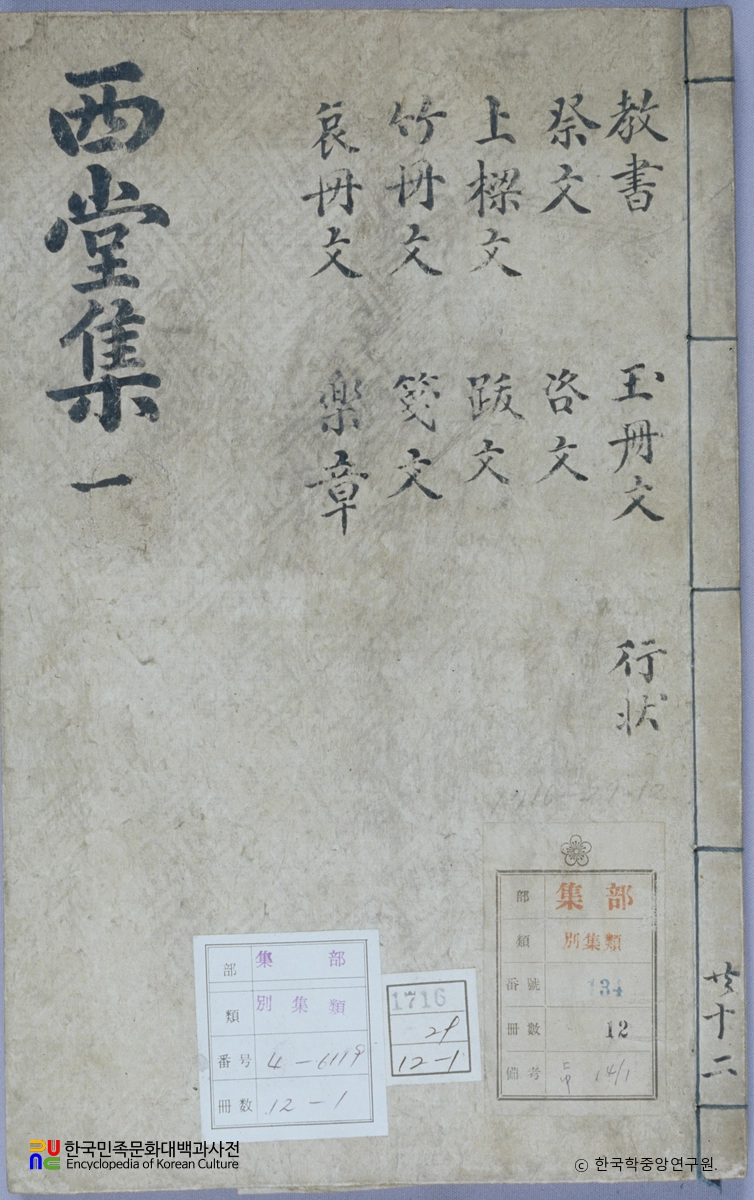 教書 玉冊文 行狀
祭文 咨文
上樑文 跋文
竹冊文 箋文
哀冊文 樂章
西堂集 一
共十二
部 集部
類 別集類
番號 134
冊數 12
備考 14/1
部 集部
類 別集類
番号 4-6119
冊数 12-1
1716
29
12-1
한국민족문화대백과사전
Encyclopedia of Korean Culture
ⓒ 한국학중앙연구원.